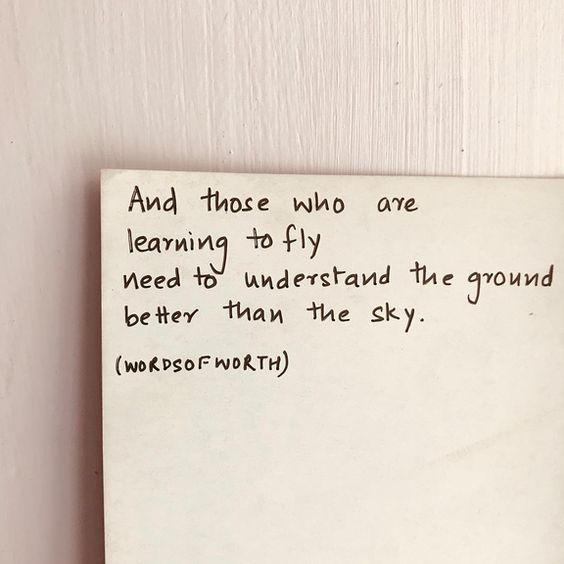 And those who are
learning to fly
need to understand the ground
better than the sky.
(WORDSOFWORTH)